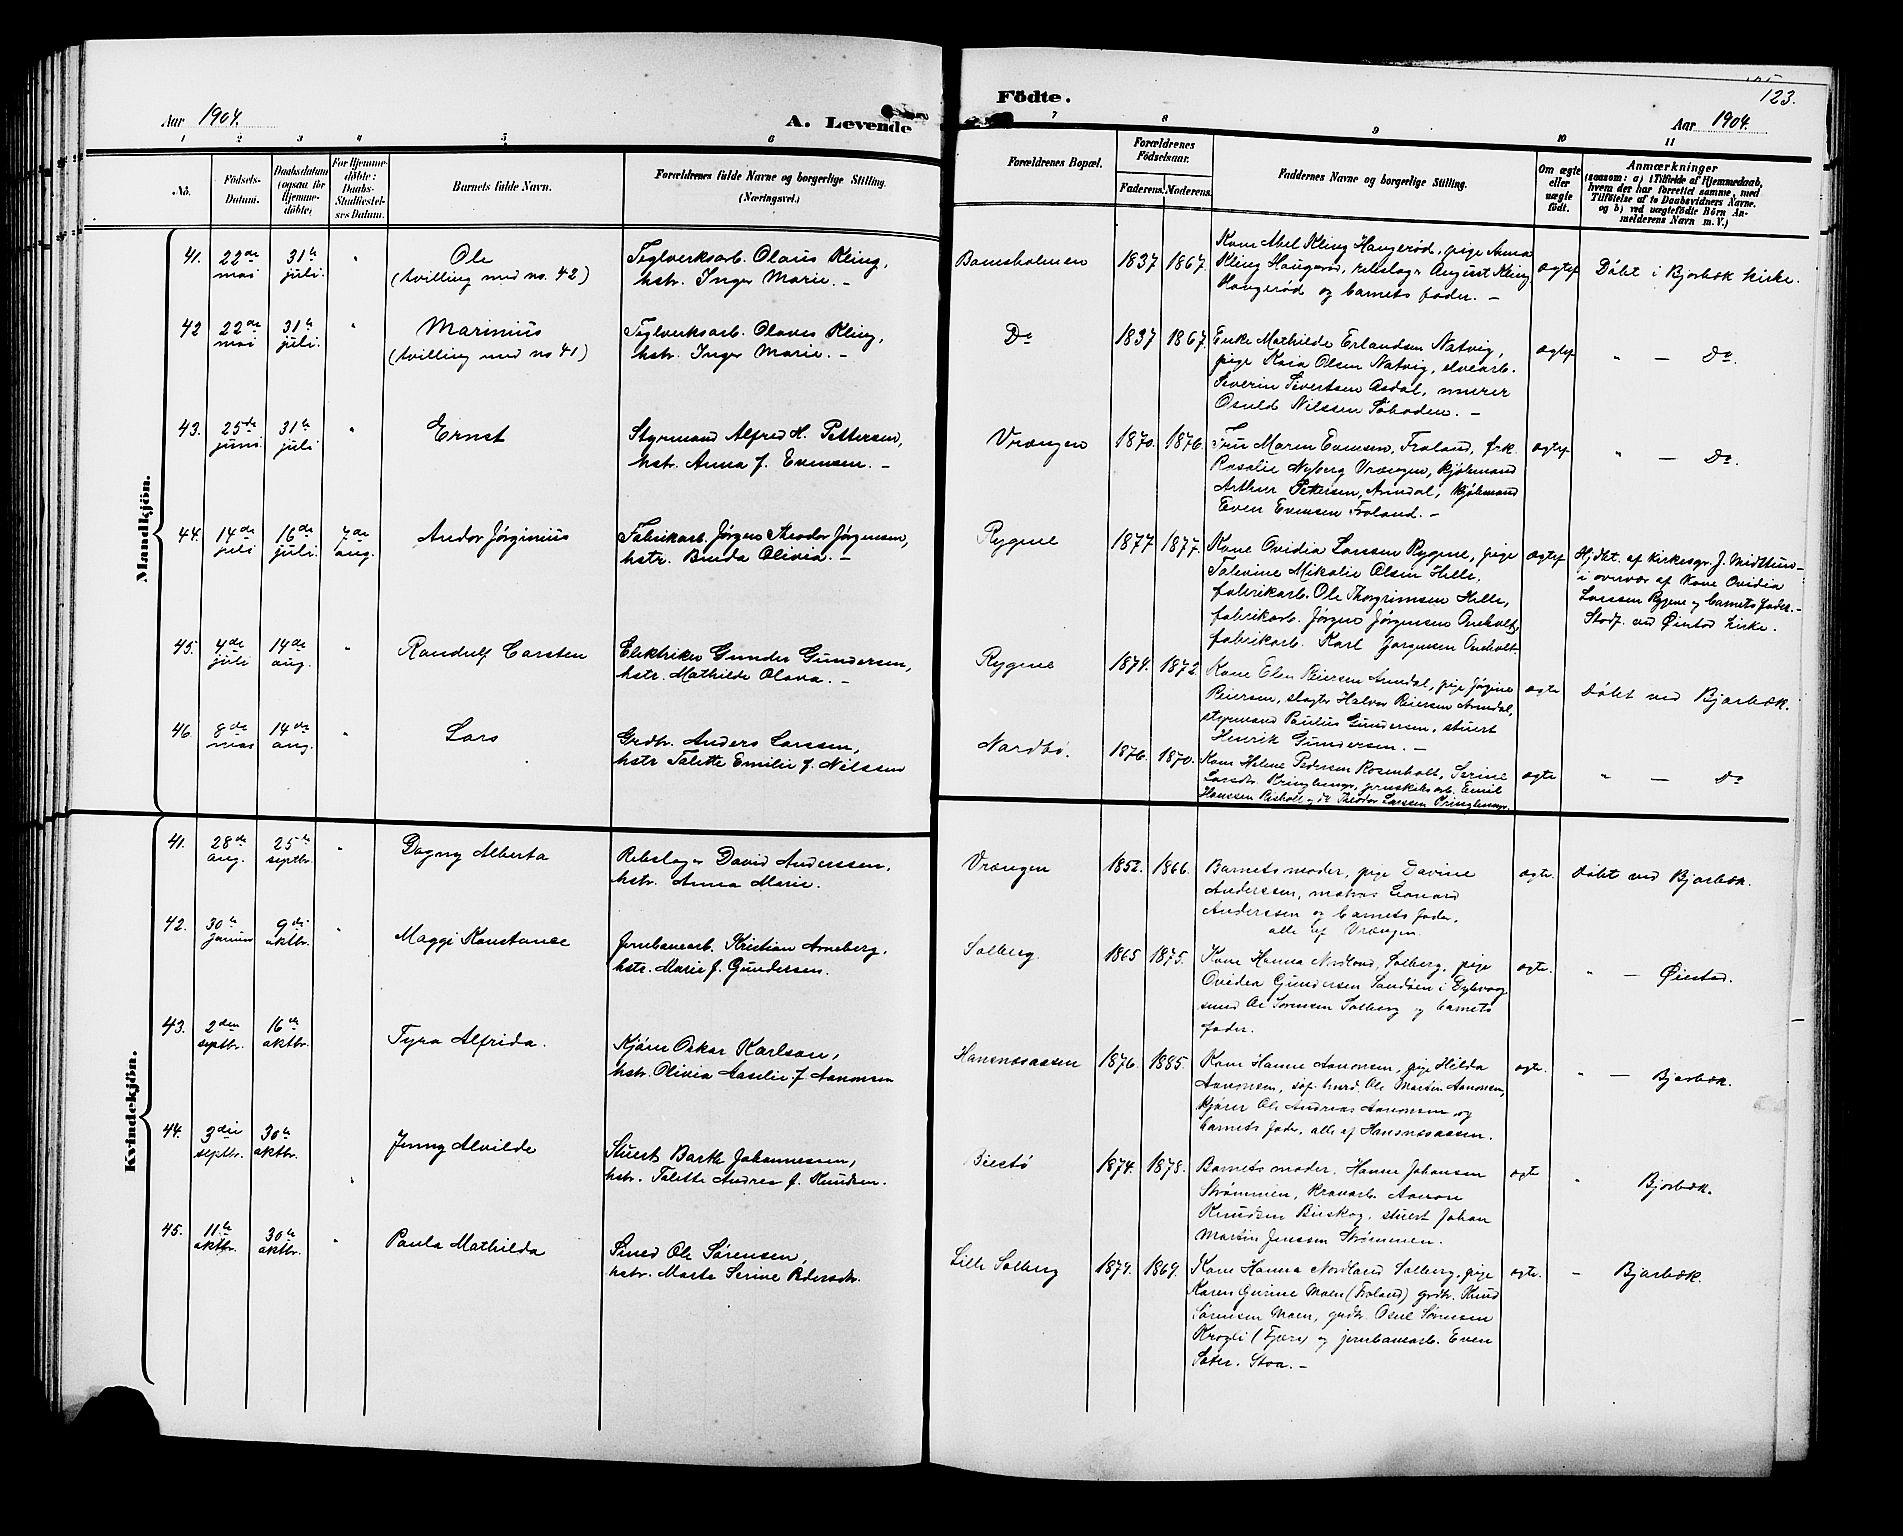 123.
Aar 1904.
A. Levende
Födte.
Aar 1904.
1 2 3 4 5 6 7 8 9 10 11
No.
Födsels-Datum.
Daabsdatum (ogsaa for Hjemmedöbte)
For Hjemmedöbte: Daabs-Stadfæstelses Datum.
Barnets fulde Navn.
Forældrenes fulde Navne og borgerlige Stilling. (Næringsvei.)
Forældrenes Bopæl.
Forældrenes Födselsaar.
Faderens. Moderens.
Faddernes Navne og borgerlige Stilling.
Om ægte eller uægte födt.
Anmærkninger
(saasom: a) i Tilfælde af Hjemmedaab, hvem der har forrettet samme, med Tilföielse af to Daabsvidners Navne. og b) ved uægtefödte Börn Anmelderens Navn m. V.)
Mandkjön.
41. 22de mai 31te juli " Ole (tvilling med no. 42) Teglverksarb. Olaus Kling, hstr. Inger Marie. –
Bomsholmen 1837 1867. Kone Abel Kling Haugerød, pige Anna
Kling Haugerød, rebslager August Kling
Haugerød og barnets fader. –
ægtef Døbt i Bjorbæk kirke.
42 22de mai 31te juli. " Marinius (tvilling med no 41) Teglverksarb. Olaus Kling, hstr. Inger Marie. –
Do 1837 1867. Enke Mathilde Erlandsen Natvig,
pige Kaia Olsen Natvig, elvearb.
Severin Sivertsen Asdal, murer
Osuld Nilssen Løbaden. –
ægtef " – Do.
43. 25de juni 31te juli " Ernst Styrmand Alfred H. Pettersen, hstr. Anna f. Evensen. –
Vrængen 1870. 1876. Fru Maren Evensen, Froland, frk.
Rosalie Nyberg Vrængen, kjøbmand
Arthur Pettersen, Arendal, kjøbmand
Even Evensen Froland. –
ægtef " – Do.
44. 14de juli 16de juli 7de aug. Andor Jørginius Fabrikarb. Jørgen Theodor Jørgensen, hstr. Beruda Olivia. –
Rygene 1877 1877. Kone Ovidia Larssen Rygene, pige
Talevine Mikalie Olsen Helle,
fabrikarb. Ole Thorgrimsen Helle,
fabrikarb. Jørgen Jørgensen Oneholt,
fabrikarb. Karl Jørgensen Oneholt.
ægtef Hjdbt. af kirkesgr. J. Midttun
i overvær af kone Ovidia
Larssen Rygene og barnets fader. –
Stadf. ved Øiestad kirke.
45. 4de juli 14de aug. " Randulf Carsten Elektriker Gunder Gundersen, hstr. Mathilde Olava. –
Rygene 1874. 1872 Kone Elen Reiersen Arendal, pige Jørgine
Reiersen, slagter Halvor Reiersen Arendal,
styrmand Paulus Gundersen, stuert
Henrik Gundersen. –
ægte Døbt ved Bjorbæk.
46. 8de mai 14de aug. " Lars Grdbr. Anders Larssen, hstr Talette Emilie f. Nilssen
Nardbø. 1876. 1870. Kone Helene Pedersen Rosenholt, Serine
Larsdtr. Kringlemyr, pruskelsarb. Emil
Hanssen Risholt og do Theodor Larssen Kringlemyr.
ægte " – Do
Kvindekjön.
41. 28de aug. 25te septbr. " Dagny Alberta Rebslager David Anderssen, hstr. Anna Marie.
Vrængen 1852. 1866. Barnets moder, pige Davine
Anderssen, matros Leonard
Anderssen og barnets fader,
alle af Vrængen.
ægte. Døbt ved Bjorbæk.
42. 30te januar 9de oktbr. " Maggi Konstance Jernbanearb. Kristian Arneberg, hstr. Marie f. Gundersen.
Solberg. 1865 1875. Kone Hanna Nordland, Solberg, pige
Ovidea Gundersen Sandøen i Dybvaag
smed Ole Sørensen Solberg og barnets
fader.
ægte. " – Øiestad.
43. 2den septbr. 16de oktbr. Tyra Alfrida. Kjører Oskar Karlsen, hstr. Olivia Aaselie f Aanonsen
Hansnesaasen 1876. 1885. Kone Hanne Aanonsen, pige Hilda
Aanonsen, søf. mand Ole Martin Aanonsen,
kjører Ole Andreas Aanonsen og
barnets fader, alle af Hansnesaasen.
ægte. " – Bjorbæk.
44. 3die septbr. 30te oktbr. " Jenny Alvilde Stuert Barthe Johannessen, hstr. Talette Andrea f. Knudsen.
Biestø 1874. 1878. Barnets moder, Hanne Johansen
Strømmen, kranarb. Aanon
Knudsen Bieskog, stuert Johan
Martin Jenssen Strømmen.
ægte " Bjorbæk.
45. 11te oktbr. 30te oktbr. " Paula Mathilda Smed Ole Sørensen, hstr. Marte Serine Pedersdtr.
Lille Solberg 1874. 1869. Kone Hanna Nordland Solberg, pige
Karen Gurine Moen (Froland) grdbr. Knud
Sørensen Moen, grdbr. Osul Sørensen
Krogli (Fjære) og jernbanearb. Even
Sæter. Stoa. –
ægte. – Bjorbæk.